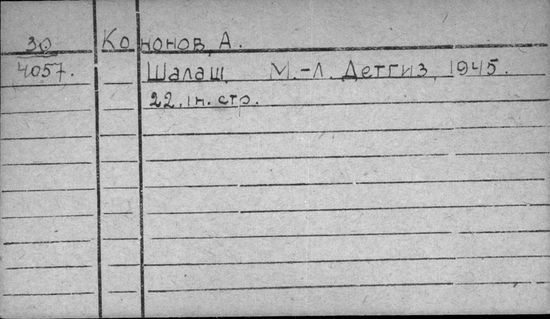 30 Кононов, А.
4057. Шалаш М.-Л. Детгиз, 1945.
22, 1н. стр.